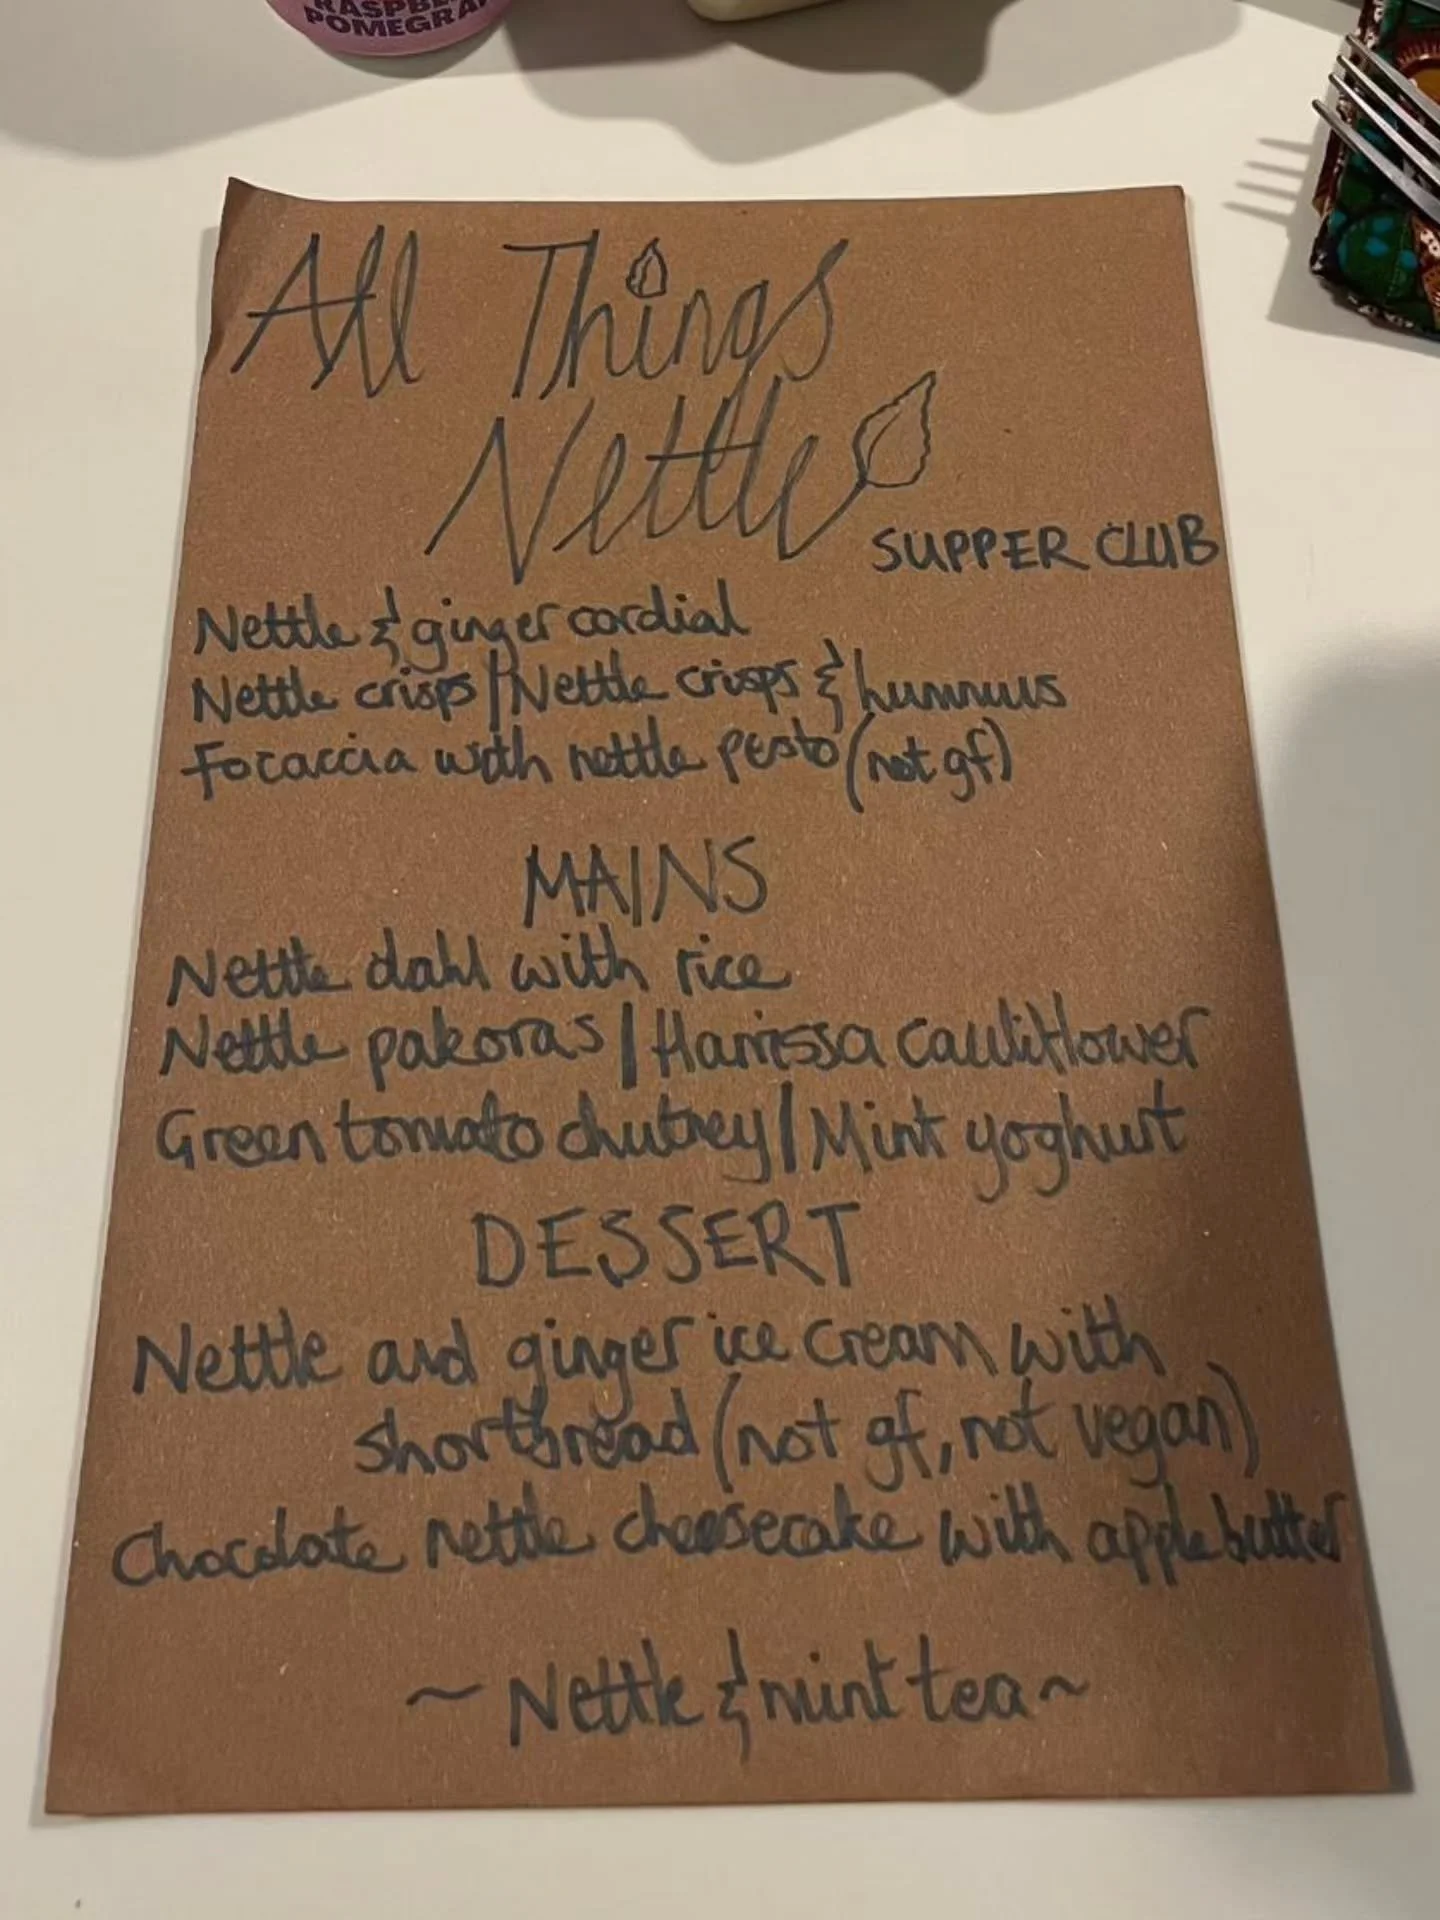 RASPBE
POMEGRA
All Things
Nettle
SUPPER CLUB
Nettle & ginger cordial
Nettle crisps / Nettle crisps & hummus
Focaccia with nettle pesto (not gf)
MAINS
Nettle dahl with rice
Nettle pakoras / Harrissa cauliflower
Green tomato chutney / Mint yoghurt
DESSERT
Nettle and ginger ice cream with
shortbread (not gf, not vegan)
Chocolate nettle cheesecake with apple butter
~ Nettle & mint tea ~